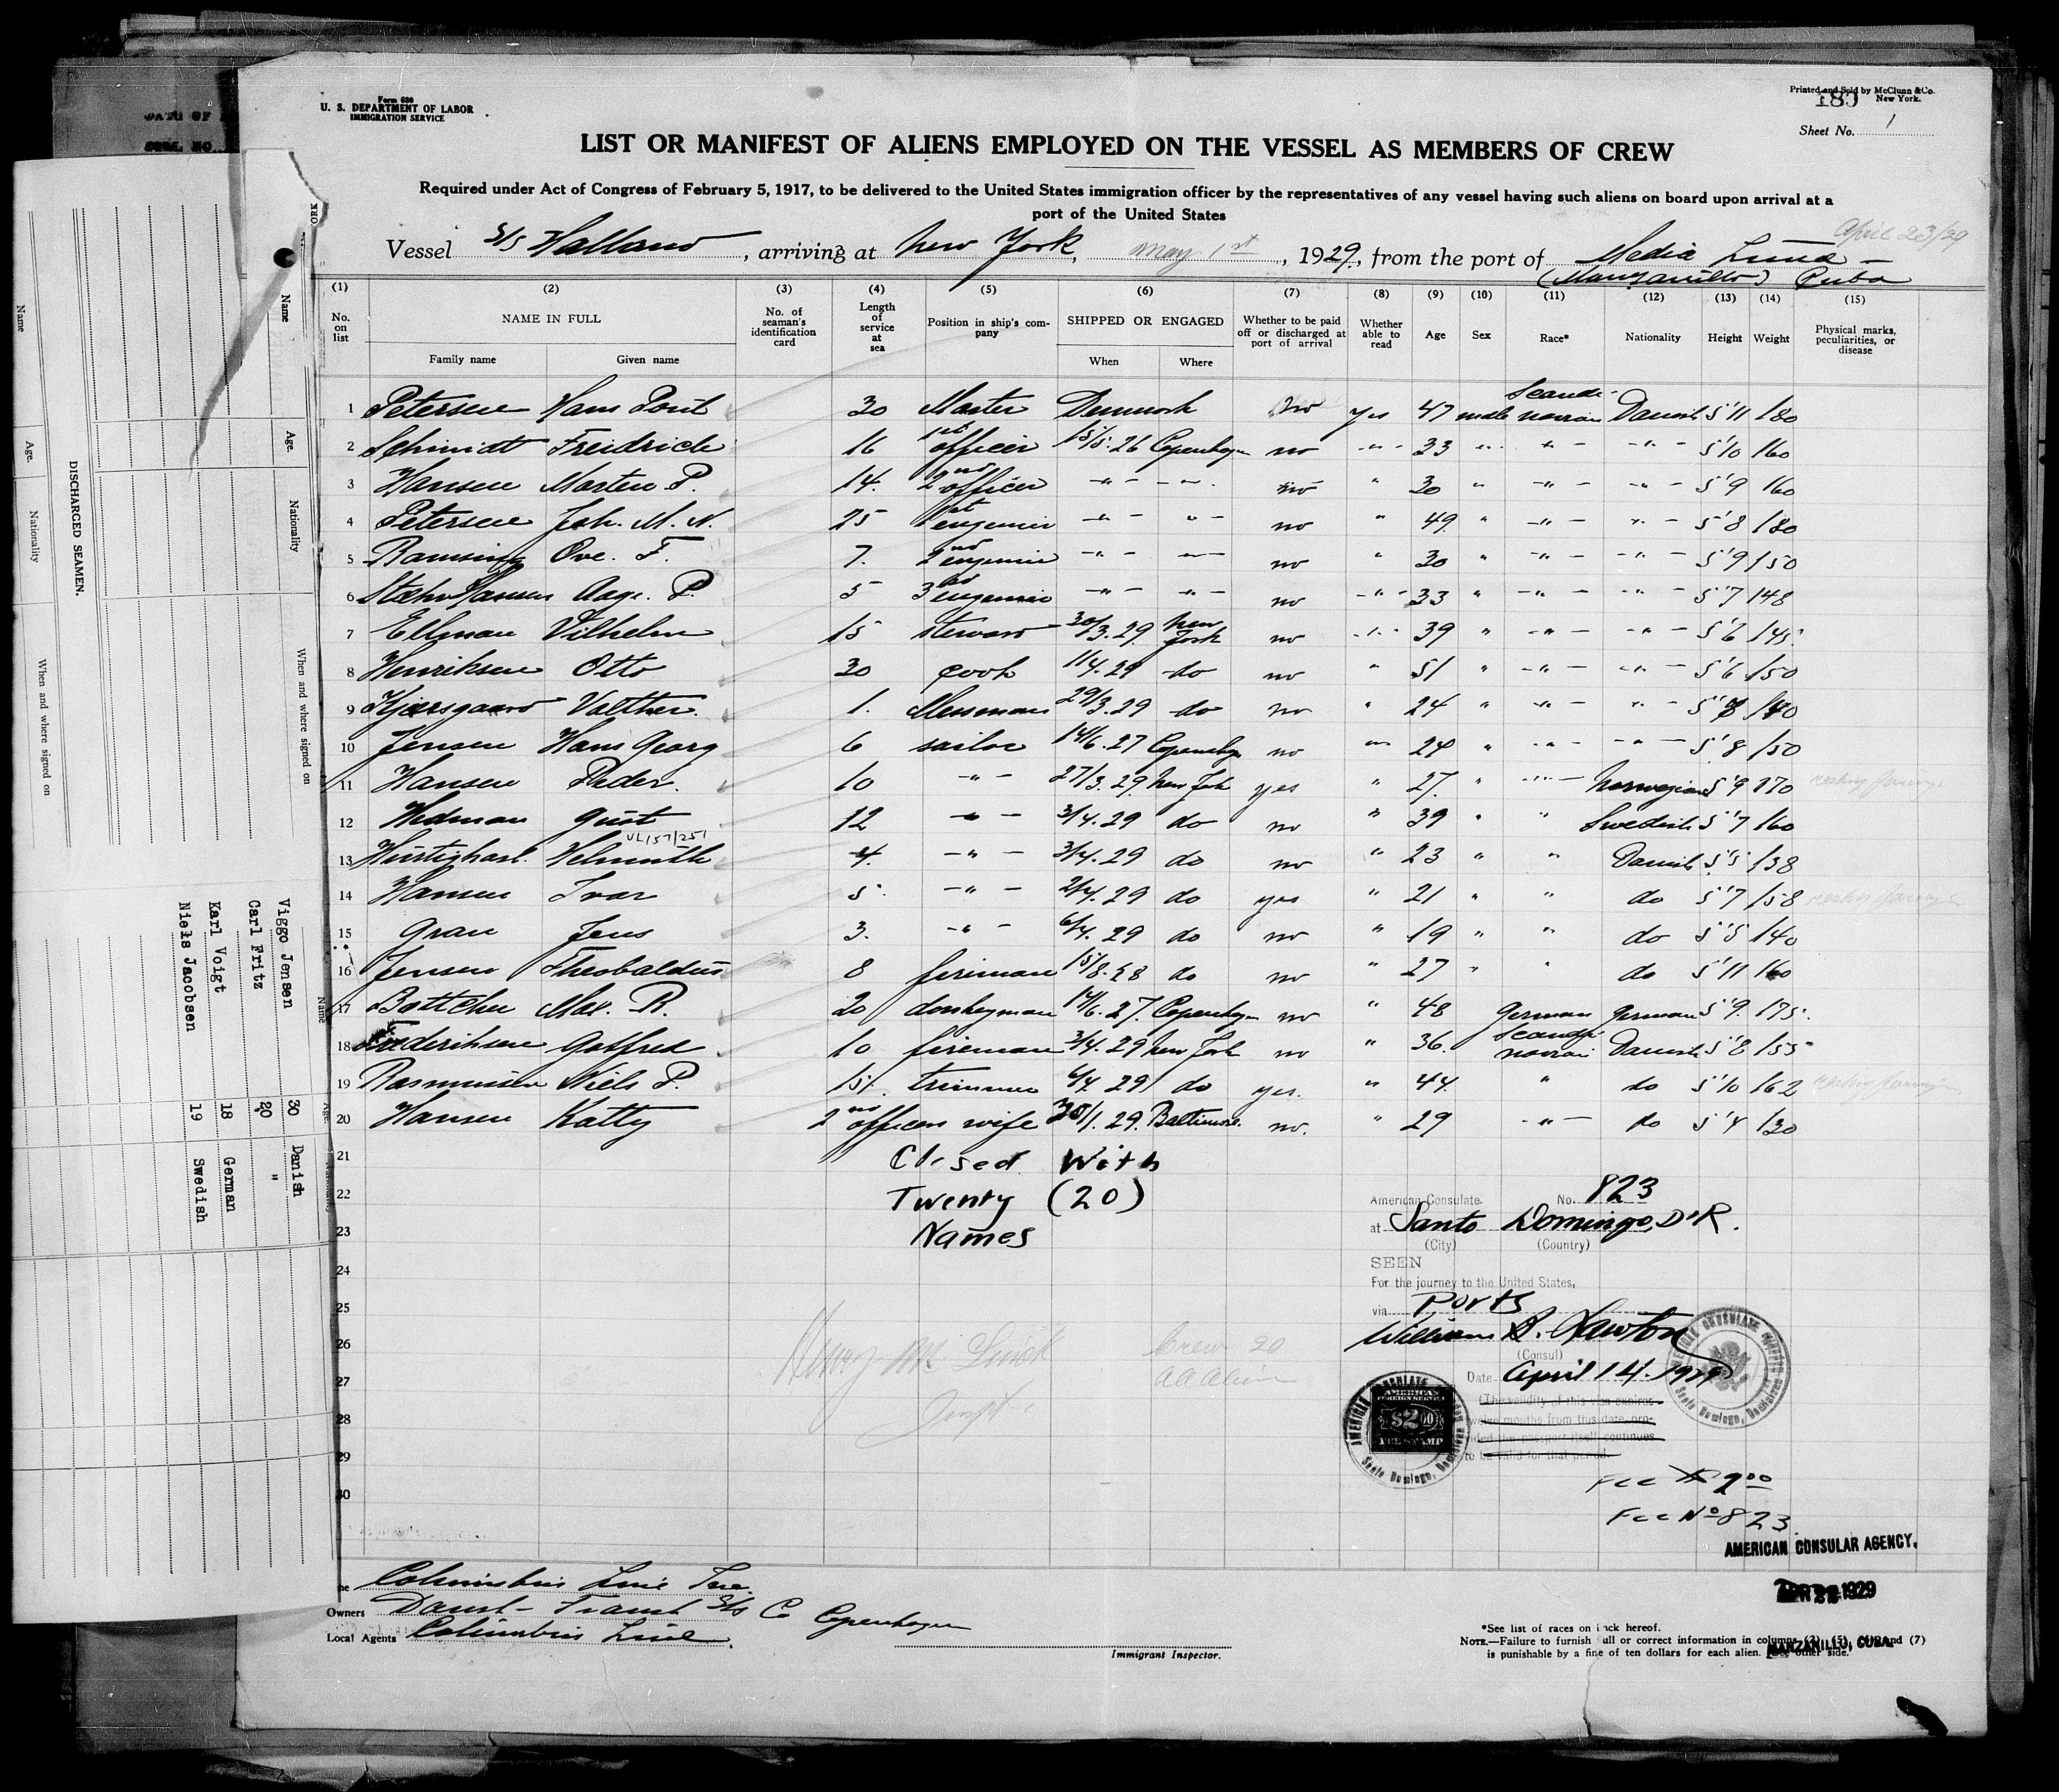 Form 680
U. S. DEPARTMENT OF LABOR
IMMIGRATION SERVICE
Printed and Sold by McClunn & Co.
New York.
189
Sheet No. 1
LIST OR MANIFEST OF ALIENS EMPLOYED ON THE VESSEL AS MEMBERS OF CREW
Required under Act of Congress of February 5, 1917, to be delivered to the United States immigration officer by the representatives of any vessel having such aliens on board upon arrival at a
port of the United States
April 23/29
Vessel S/S Halland, arriving at New York, May 1st, 1929, from the port of Media Luna -
(Manzanillo) Cuba
(1) (2) (3) (4) (5) (6) (7) (8) (9) (10) (11) (12) (13) (14) (15)
No. on list NAME IN FULL Family name Given name No. of seaman's identification card Length of service at sea Position in ship's company SHIPPED OR ENGAGED When Where Whether to be paid off or discharged at port of arrival Whether able to read Age Sex Race* Nationality Height Weight Physical marks, peculiarities, or disease
1 Petersen Hans Poul 30 Master Denmark no yes 47 male Scandinavian Danish 5'11 180
2 Schmidt Freidrich 16 1st officer 15/5.26 Copenhagen no -"- 33 " -"- -"- 5'10 160
3 Hansen Morten P. 14. 2nd officer -"- -"- no " 30 " -"- -"- 5'9 160
4 Petersen Joh. M. N. 25 1st engenier -"- -"- no " 49 " -"- -"- 5'8 180
5 Ramsing Ove. F. 7. 2nd engenier -"- -"- no " 30 " -"- -"- 5'9 150
6 Stæhr Hansen Aage. P. 5 3rd engenier -"- -"- no -"- 33 " -"- -"- 5'7 148
7 Ellman Vilhelm 15 steward 30/3.29 New York no -"- 39 " -"- -"- 5'6 145
8 Henriksen Otto 30 cook 1/4.29 do no " 51 " -"- -"- 5'6 150
9 Kjærsgaard Valther. 1. Messman 29/3.29 do no " 24 " -"- -"- 5'8 140
10 Jensen Hans Georg 6 sailor 14/6.27 Copenhagen no " 24 " -"- -"- 5'8 150
11 Hansen Peder. 10 -"- 27/3.29 New York yes " 27. " -"- Norwegian 5'9 170
12 Hedman Gust 12 -"- 3/4.29 do no " 39 " " Swedish 5'7 160
VL157/251
13 Helmuth 4. -"- 3/4.29 do no " 23 " " Danish 5'5 138
14 Hansen Ivar 5. -"- 2/4.29 do yes " 21 " " do 5'7 158
15 Grau Jens 3. -"- 6/4.29 do no " 19 " " do 5'5 140
16 Jensen Theobaldus 8 fireman 15/8.28 do no " 27 " " do 5'11 160
17 Bottcher Max. R. 20 donkeyman 14/6.27. Copenhagen no " 48 German German 5'9. 175.
18 Frederiksen Gotfred 10 fireman 3/4.29 New York no " 36. Scandinavian Danish 5'8 155
19 Rasmussen Niels P. 15. trimmer 6/4 29 do yes. " 44. " do 5'10 162
20 Hansen Katty 2nd officers wife 30/1.29. Baltimore. no. " 29 -"- do 5'4 130
21 Closed With
22 Twenty (20)
23 Names
24
25
26
27
28
29
30
Crew 20
All Alien
American Consulate. No. 823
at Santo Domingo, D.R.
(City) (Country)
SEEN
For the journey to the United States,
via Ports
William B. Lawton
(Consul)
Date April 14. 1929
(The validity of this visa expires
twelve months from this date, pro-
vided the passport itself continues
to be valid for that period.
AMERICAN CONSULATE
Santo Domingo, Dominican
AMERICAN
FOREIGN SERVICE
$2.00
FEE STAMP
Fee $2.00
Fee No 823
AMERICAN CONSULAR AGENCY.
APR 1929
MANZANILLO, CUBA.
Columbus Line Inc.
Owners Danish-Fransk S/S Co Copenhagen
Local Agents Columbus Line.
Immigrant Inspector.
*See list of races on back hereof.
NOTE.—Failure to furnish full or correct information in columns (3), (5), (6) and (7)
is punishable by a fine of ten dollars for each alien. See other side.
DISCHARGED SEAMEN.
Name Age. Nationality When and where signed on
Name Age. Nationality When and where signed on
Viggo Jensen 30 Danish
Carl Fritz 20 "
Karl Voigt 18 German
Niels Jacobsen 19 Swedish